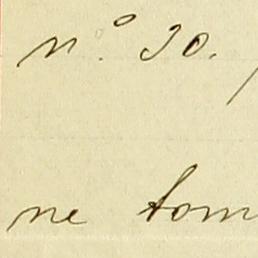 n.º 30.
ne tom